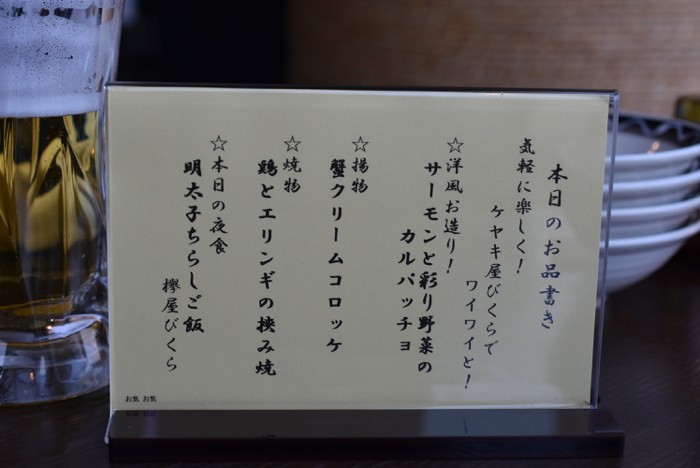 本日のお品書き
気軽に楽しく!
ケヤキ屋びくらで
ワイワイと!
☆洋風お造り!
サーモンと彩り野菜の
カルパッチョ
☆揚物
蟹クリームコロッケ
☆焼物
鶏とエリンギの挟み焼
☆本日の夜食
明太子ちらしご飯
欅屋びくら